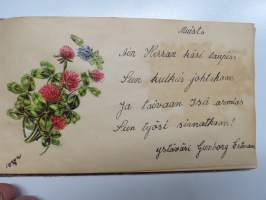 Muisto
Niin Herran käsi laupias
Sun kulkus johtakoon
Ja taivaan Isä armias
Sun työsi siunatkoon!
ystäväsi Gunborg